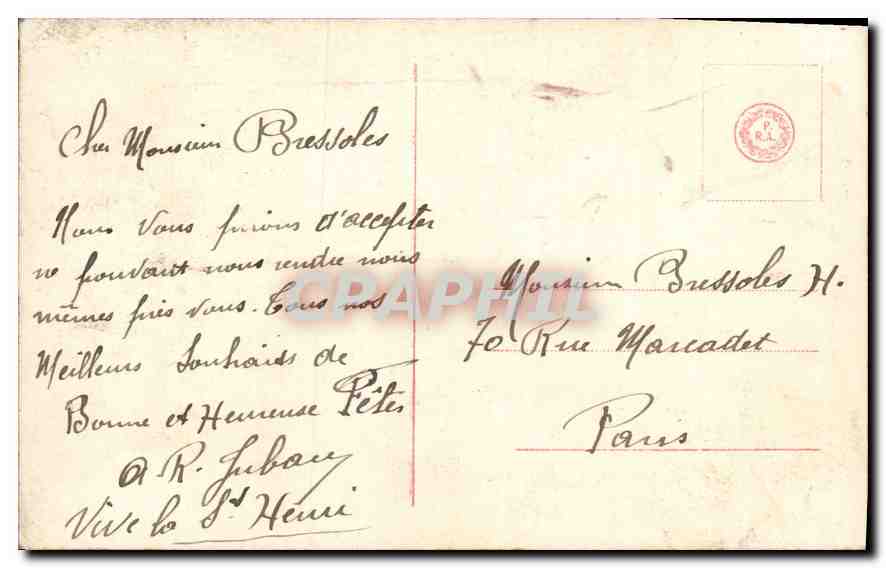 Cher Monsieur Bressoles
Nous vous prions d'accepter
ne pouvant nous rendre nous
mêmes près vous. Tous nos
Meilleurs Souhaits de
Bonne et Heureuse Fêtes
R.
Vive la St Henri
P.
R.A.
Monsieur Bressoles H.
70 Rue Marcadet
Paris
CPAPHIL